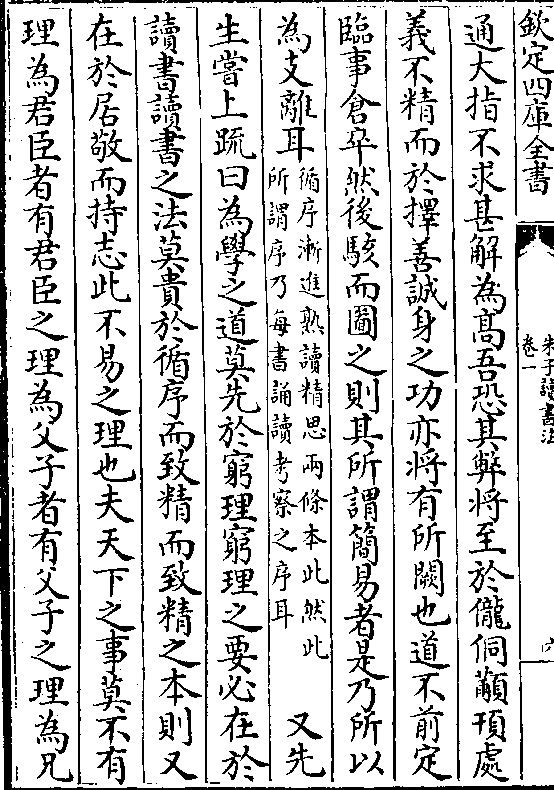 欽定四庫全書
朱子讀書法
卷一
六
通大指不求甚解為高吾恐其弊將至於儱侗顢頇處
義不精而於擇善誠身之功亦將有所闕也道不前定
臨事倉卒然後駭而圖之則其所謂簡易者是乃所以
為支離耳
循序漸進熟讀精思兩條本此然此
所謂序乃每書誦讀考察之序耳
又先
生嘗上疏曰為學之道莫先於窮理窮理之要必在於
讀書讀書之法莫貴於循序而致精而致精之本則又
在於居敬而持志此不易之理也夫天下之事莫不有
理為君臣者有君臣之理為父子者有父子之理為兄